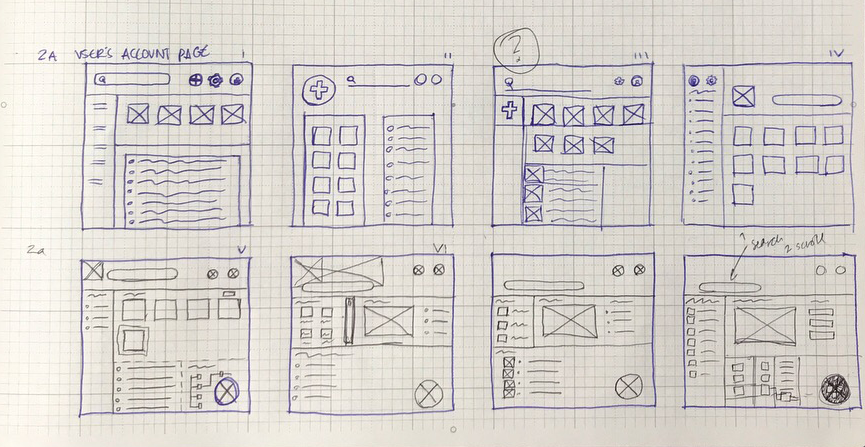 2A USER'S ACCOUNT PAGE I
II
?
III
IV
2a
V
VI
1 search 2 scroll